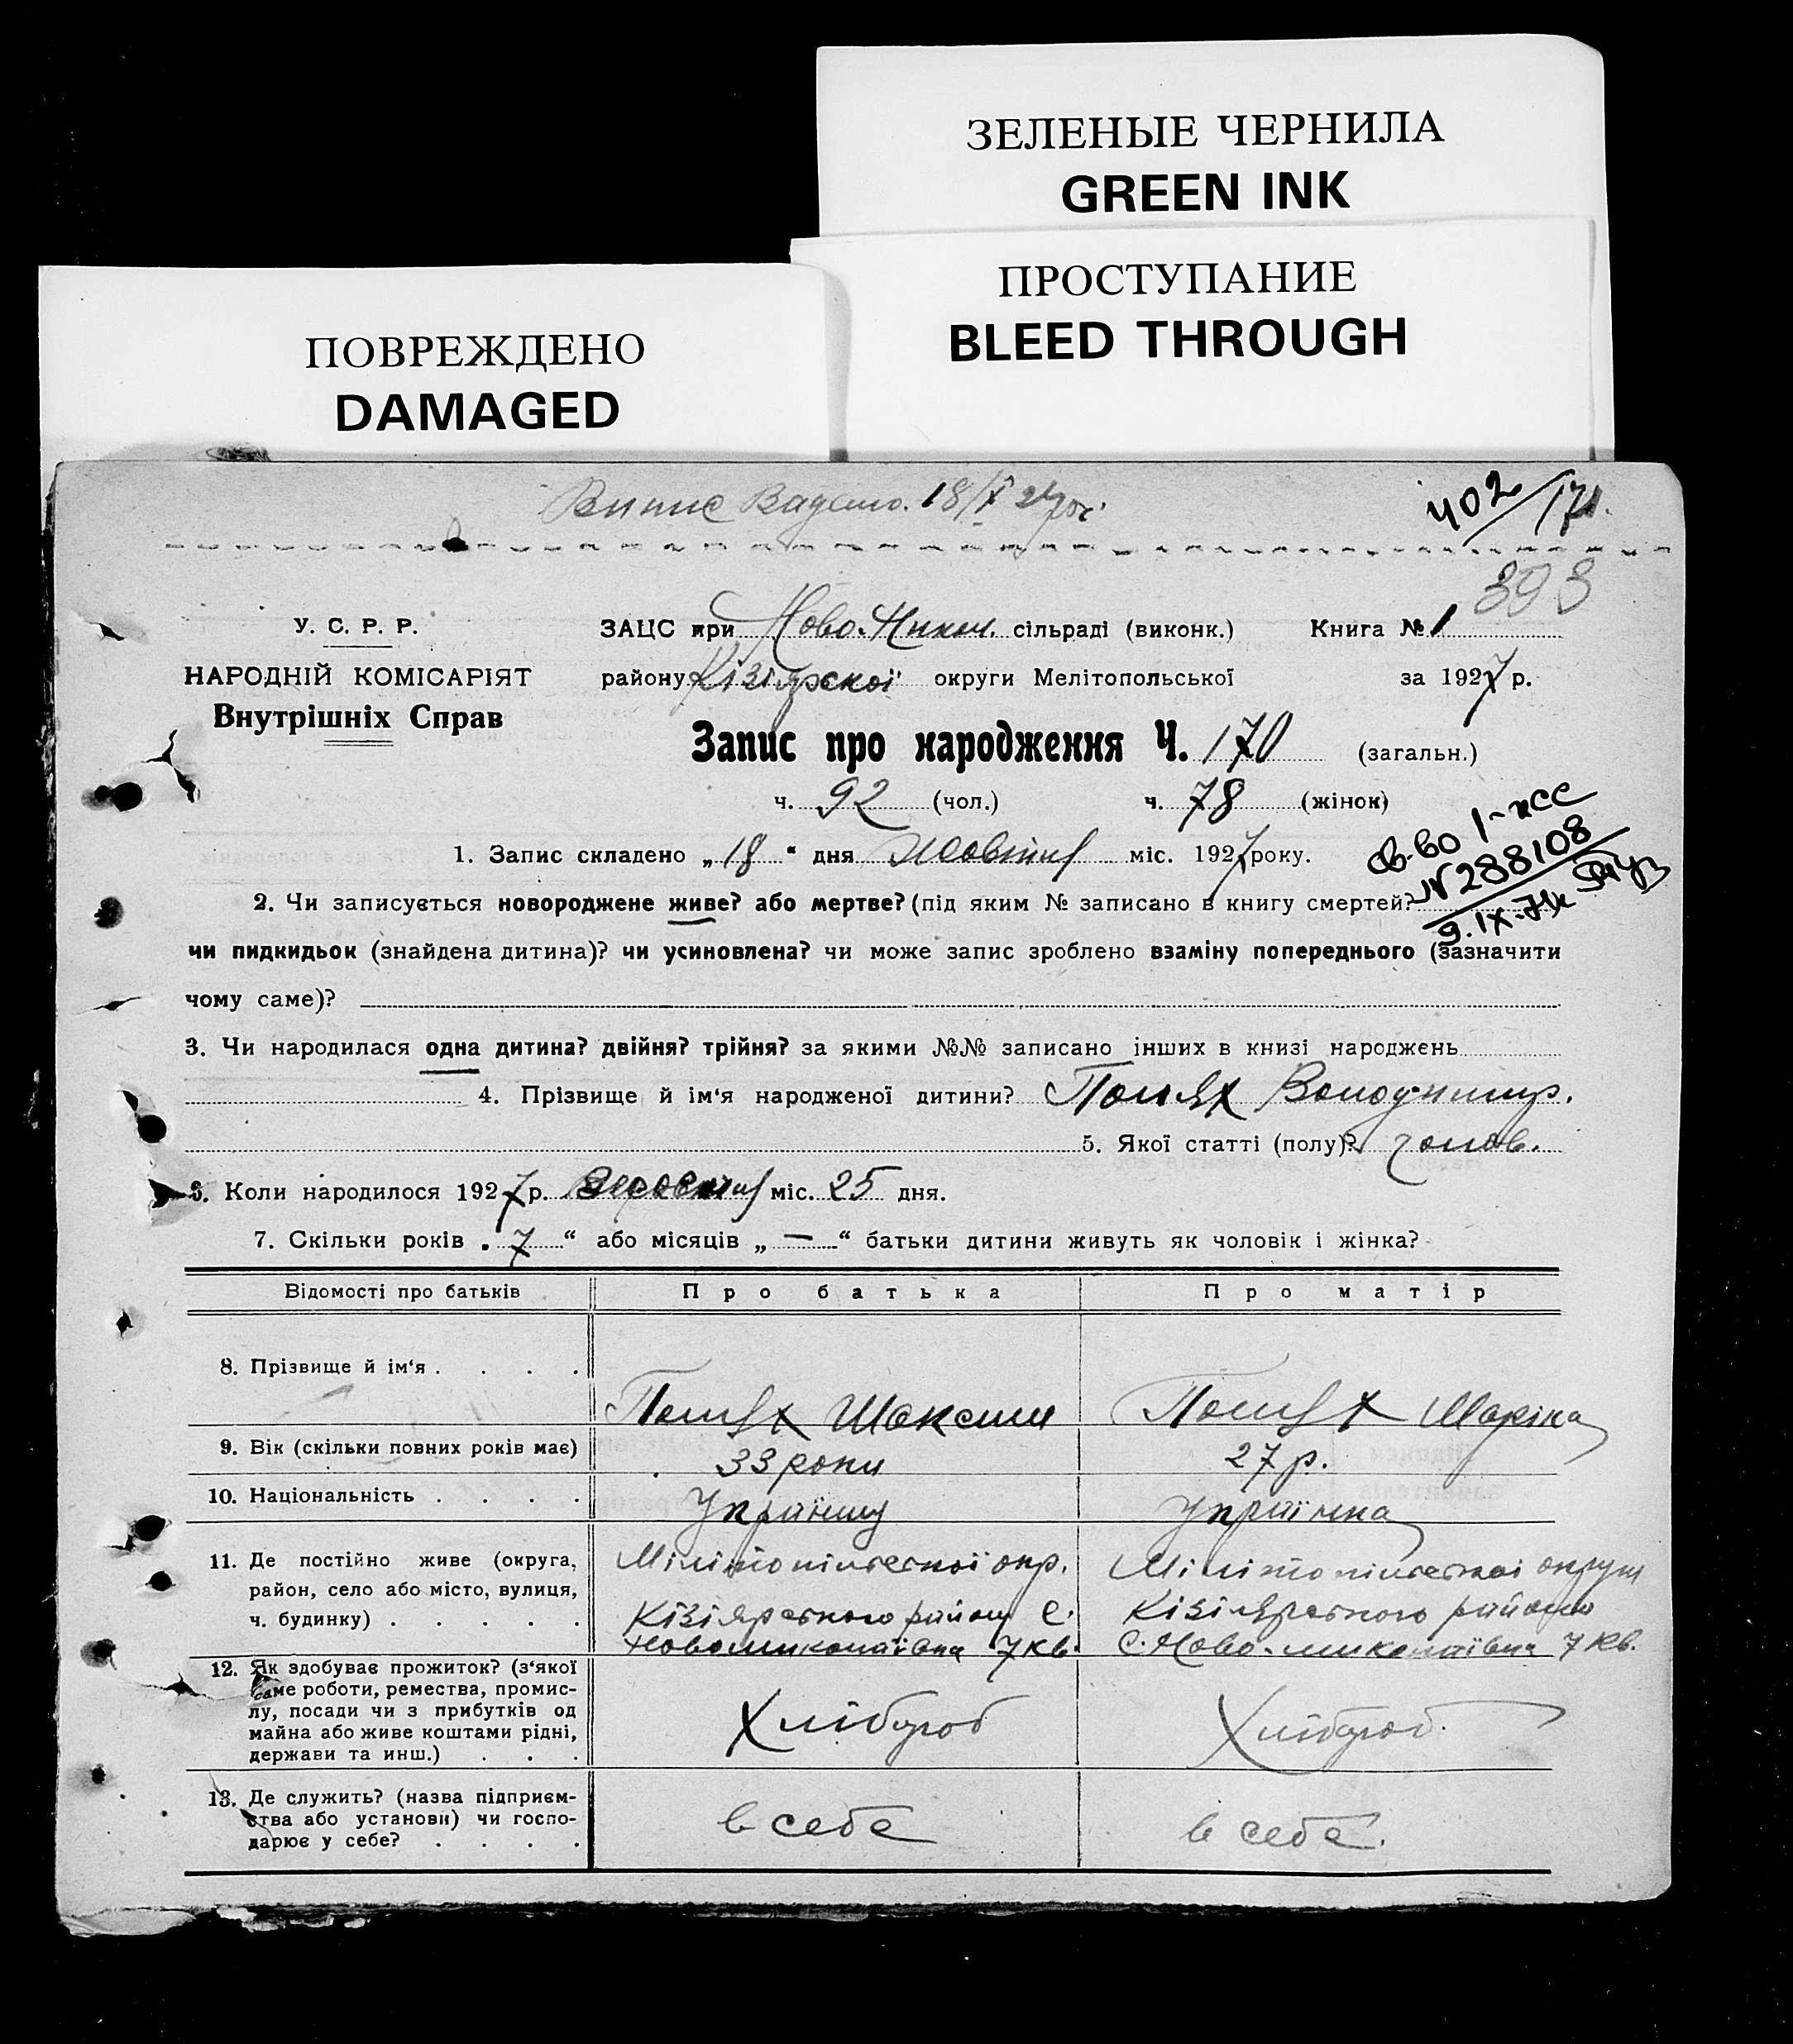 ЗЕЛЕНЫЕ ЧЕРНИЛА
GREEN INK
ПРОСТУПАНИЕ
BLEED THROUGH
ПОВРЕЖДЕНО
DAMAGED
402/171.
393
У. С. Р. Р.
НАРОДНІЙ КОМІСАРІЯТ
Внутрішніх Справ
ЗАЦС при Ново-Никол. сільраді (виконк.) Книга № 1
району Кізіярської округи Мелітопольської за 1927 р.
Запис про народження Ч. 170 (загальн.)
ч. 92 (чол.) ч. 78 (жінок)
1. Запис складено „ 18 “ дня Жовтня міс. 1927 року.
св-во
№ 288108
2. Чи записується новороджене живе? або мертве? (під яким № записано в книгу смертей?
чи пидкидьок (знайдена дитина)? чи усиновлена? чи може запис зроблено взаміну попереднього (зазначити
чому саме)?
3. Чи народилася одна дитина? двійня? трійня? за якими №№ записано інших в книзі народжень
4. Прізвище й ім‘я народженої дитини? Володимир.
5. Якої статті (полу)? чолов.
6. Коли народилося 1927 р. міс. 25 дня.
7. Скільки років „ 7 “ або місяців „ — “ батьки дитини живуть як чоловік і жінка?
Відомості про батьків Про батька Про матір
8. Прізвище й ім‘я . . . . Максим Маріна
9. Вік (скільки повних років має) 33 роки 27 р.
10. Національність . . . . Українець Українка
11. Де постійно живе (округа, Мілітопільської окр. Мілітопільської округи
район, село або місто, вулиця, Кізіярського району С. Кізіярського району
ч. будинку) . . . . . Новомиколаївка 7 кв. С. Ново-миколаївка 7 кв.
12. Як здобуває прожиток? (з‘якої
саме роботи, ремества, промис-
лу, посади чи з прибутків од Хлібороб Хлібороб.
майна або живе коштами рідні,
держави та инш.) . . .
13. Де служить? (назва підприєм-
ства або установи) чи госпо- в себе в себе.
дарює у себе? . . . .